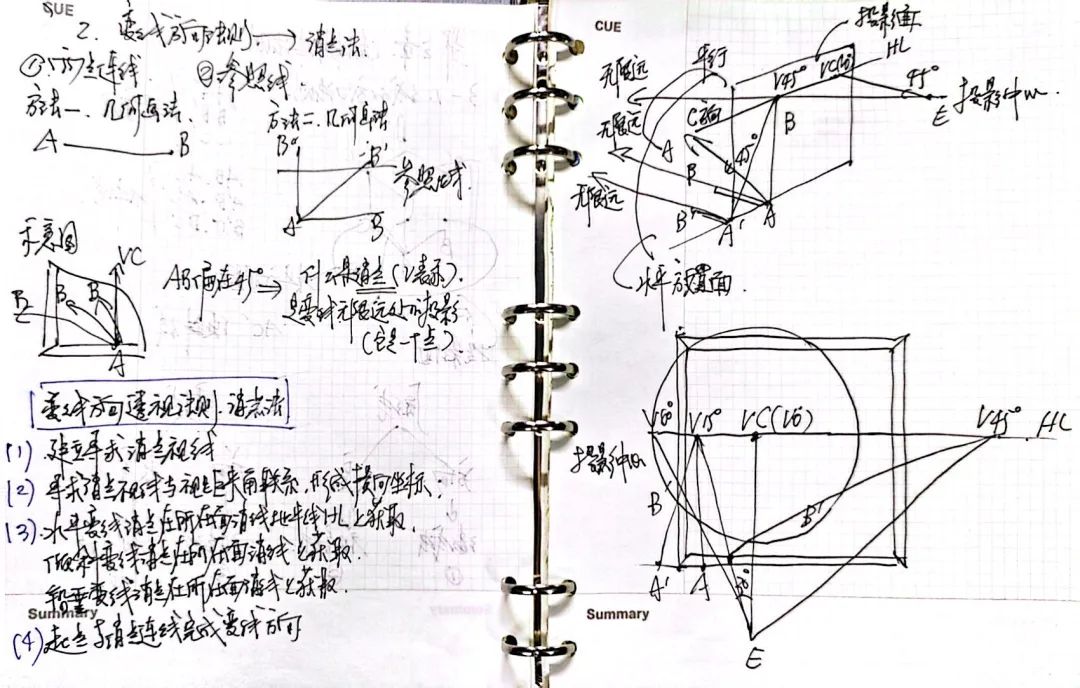 SUE
2. 变线方向法则→消点法
①两点连线 ②参照线
方法一、几何画法.
A B
方法二、几何画法
B° B'
参照线
A B
示意图
VC
B B B
A
AB偏左45°→什么是消点(V表示).
是变线无限远处的投影
(它是一个点)
变线方向透视法则.消点法
(1) 建立寻求消点视线
(2) 寻求消点视线与视距夹角联系,形成横向坐标.
(3) 水平变线消点在所在面消线地平线HL上获取.
倾斜变线消点在所在面消线上获取.
铅垂变线消点在所在面消线上获取.
Summary
(4) 起点与消点连线完成变线方向
CUE
投影面
HL
平行
无限远
V45° VC(V0°)
45°
E
投影中心
无限远
C
B
A
45°
B
无限远
B'
A'
A
水平放置面
V60° V15° VC(V0°) V45° HL
投影中心
B B'
A' A
30°
Summary
E